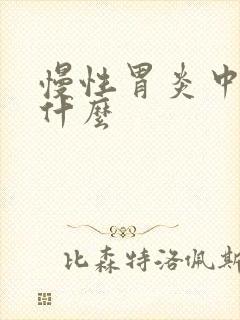 慢性胃炎中
什麼
比森特洛佩斯